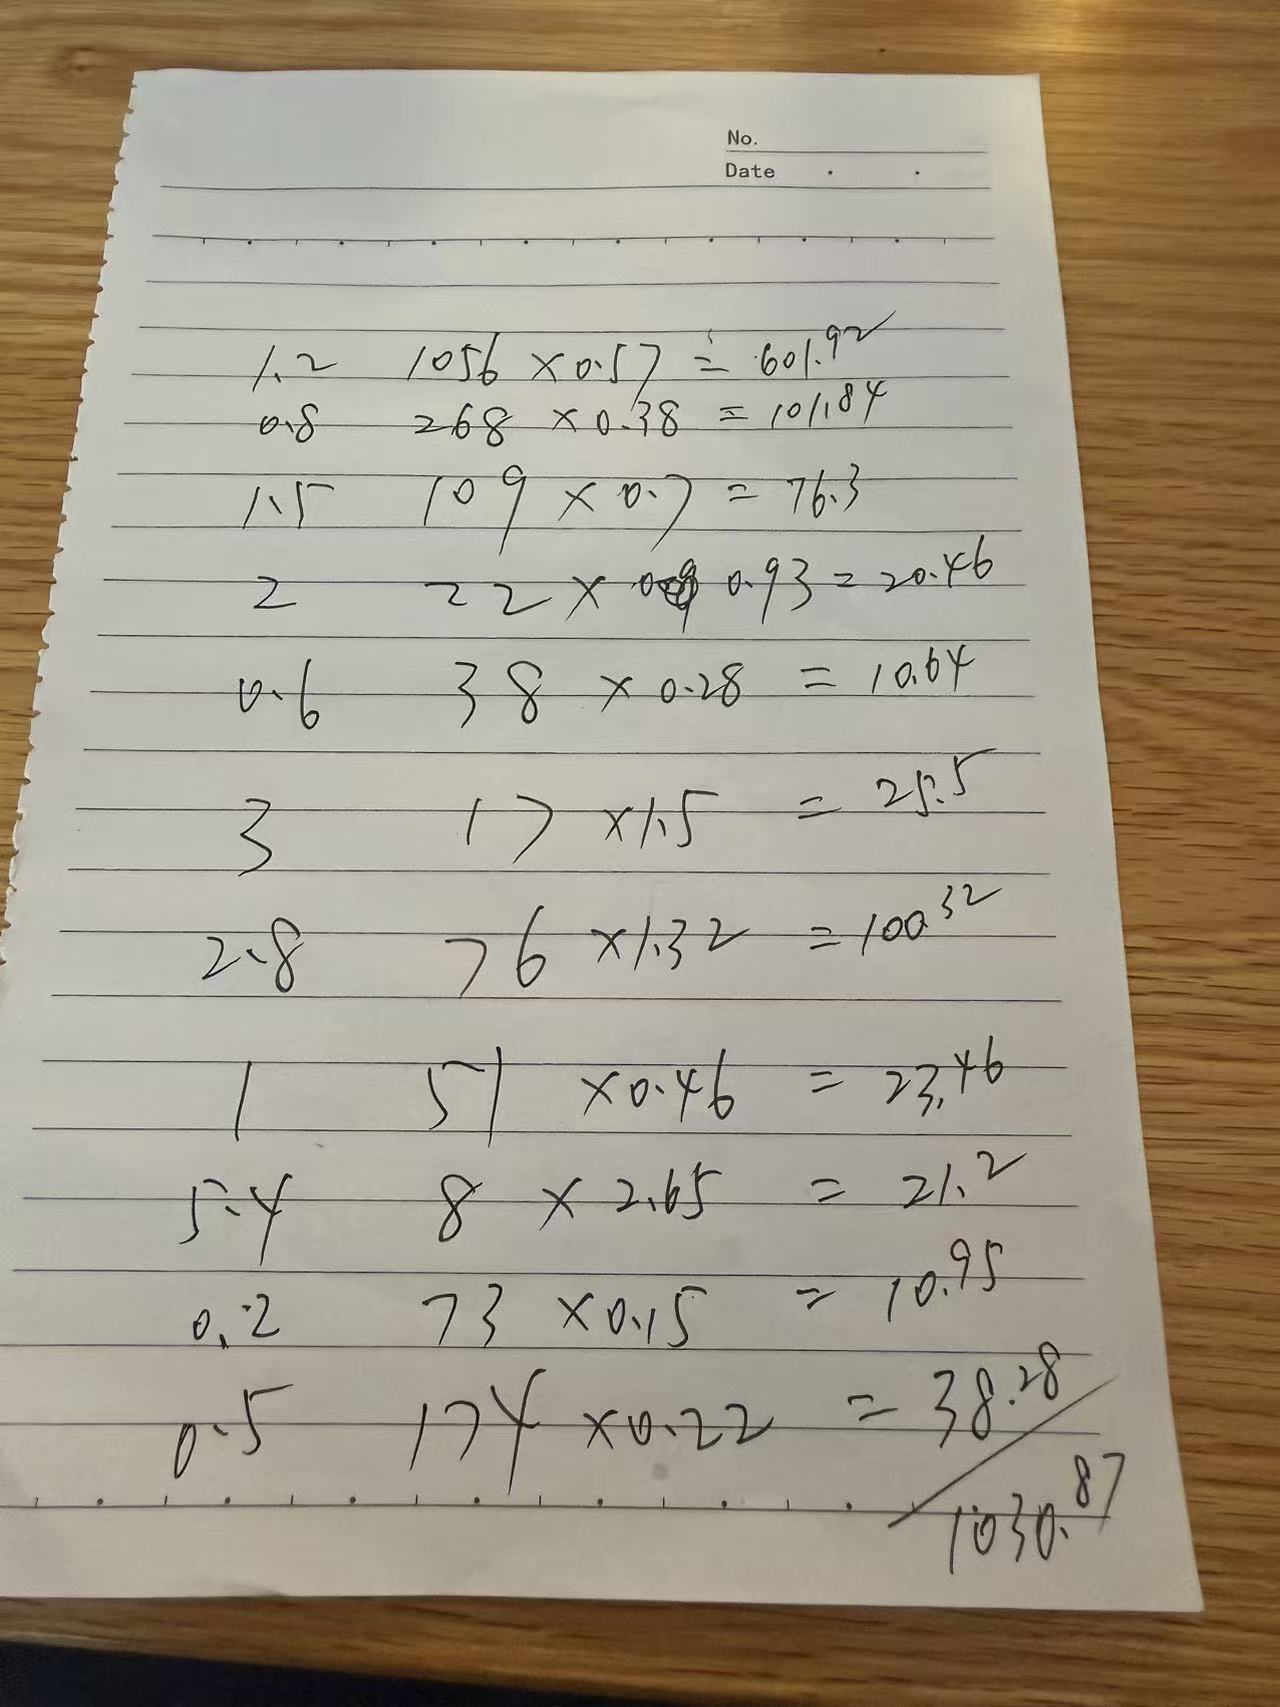 No.
Date . .
1.2 1056 × 0.57 = 601.92
0.8 268 × 0.38 = 101.84
1.5 109 × 0.7 = 76.3
2 22 × 0.93 = 20.46
0.6 38 × 0.28 = 10.64
3 17 × 1.5 = 25.5
2.8 76 × 1.32 = 100.32
1 51 × 0.46 = 23.46
5.4 8 × 2.65 = 21.2
0.2 73 × 0.15 = 10.95
0.5 174 × 0.22 = 38.28
1030.87